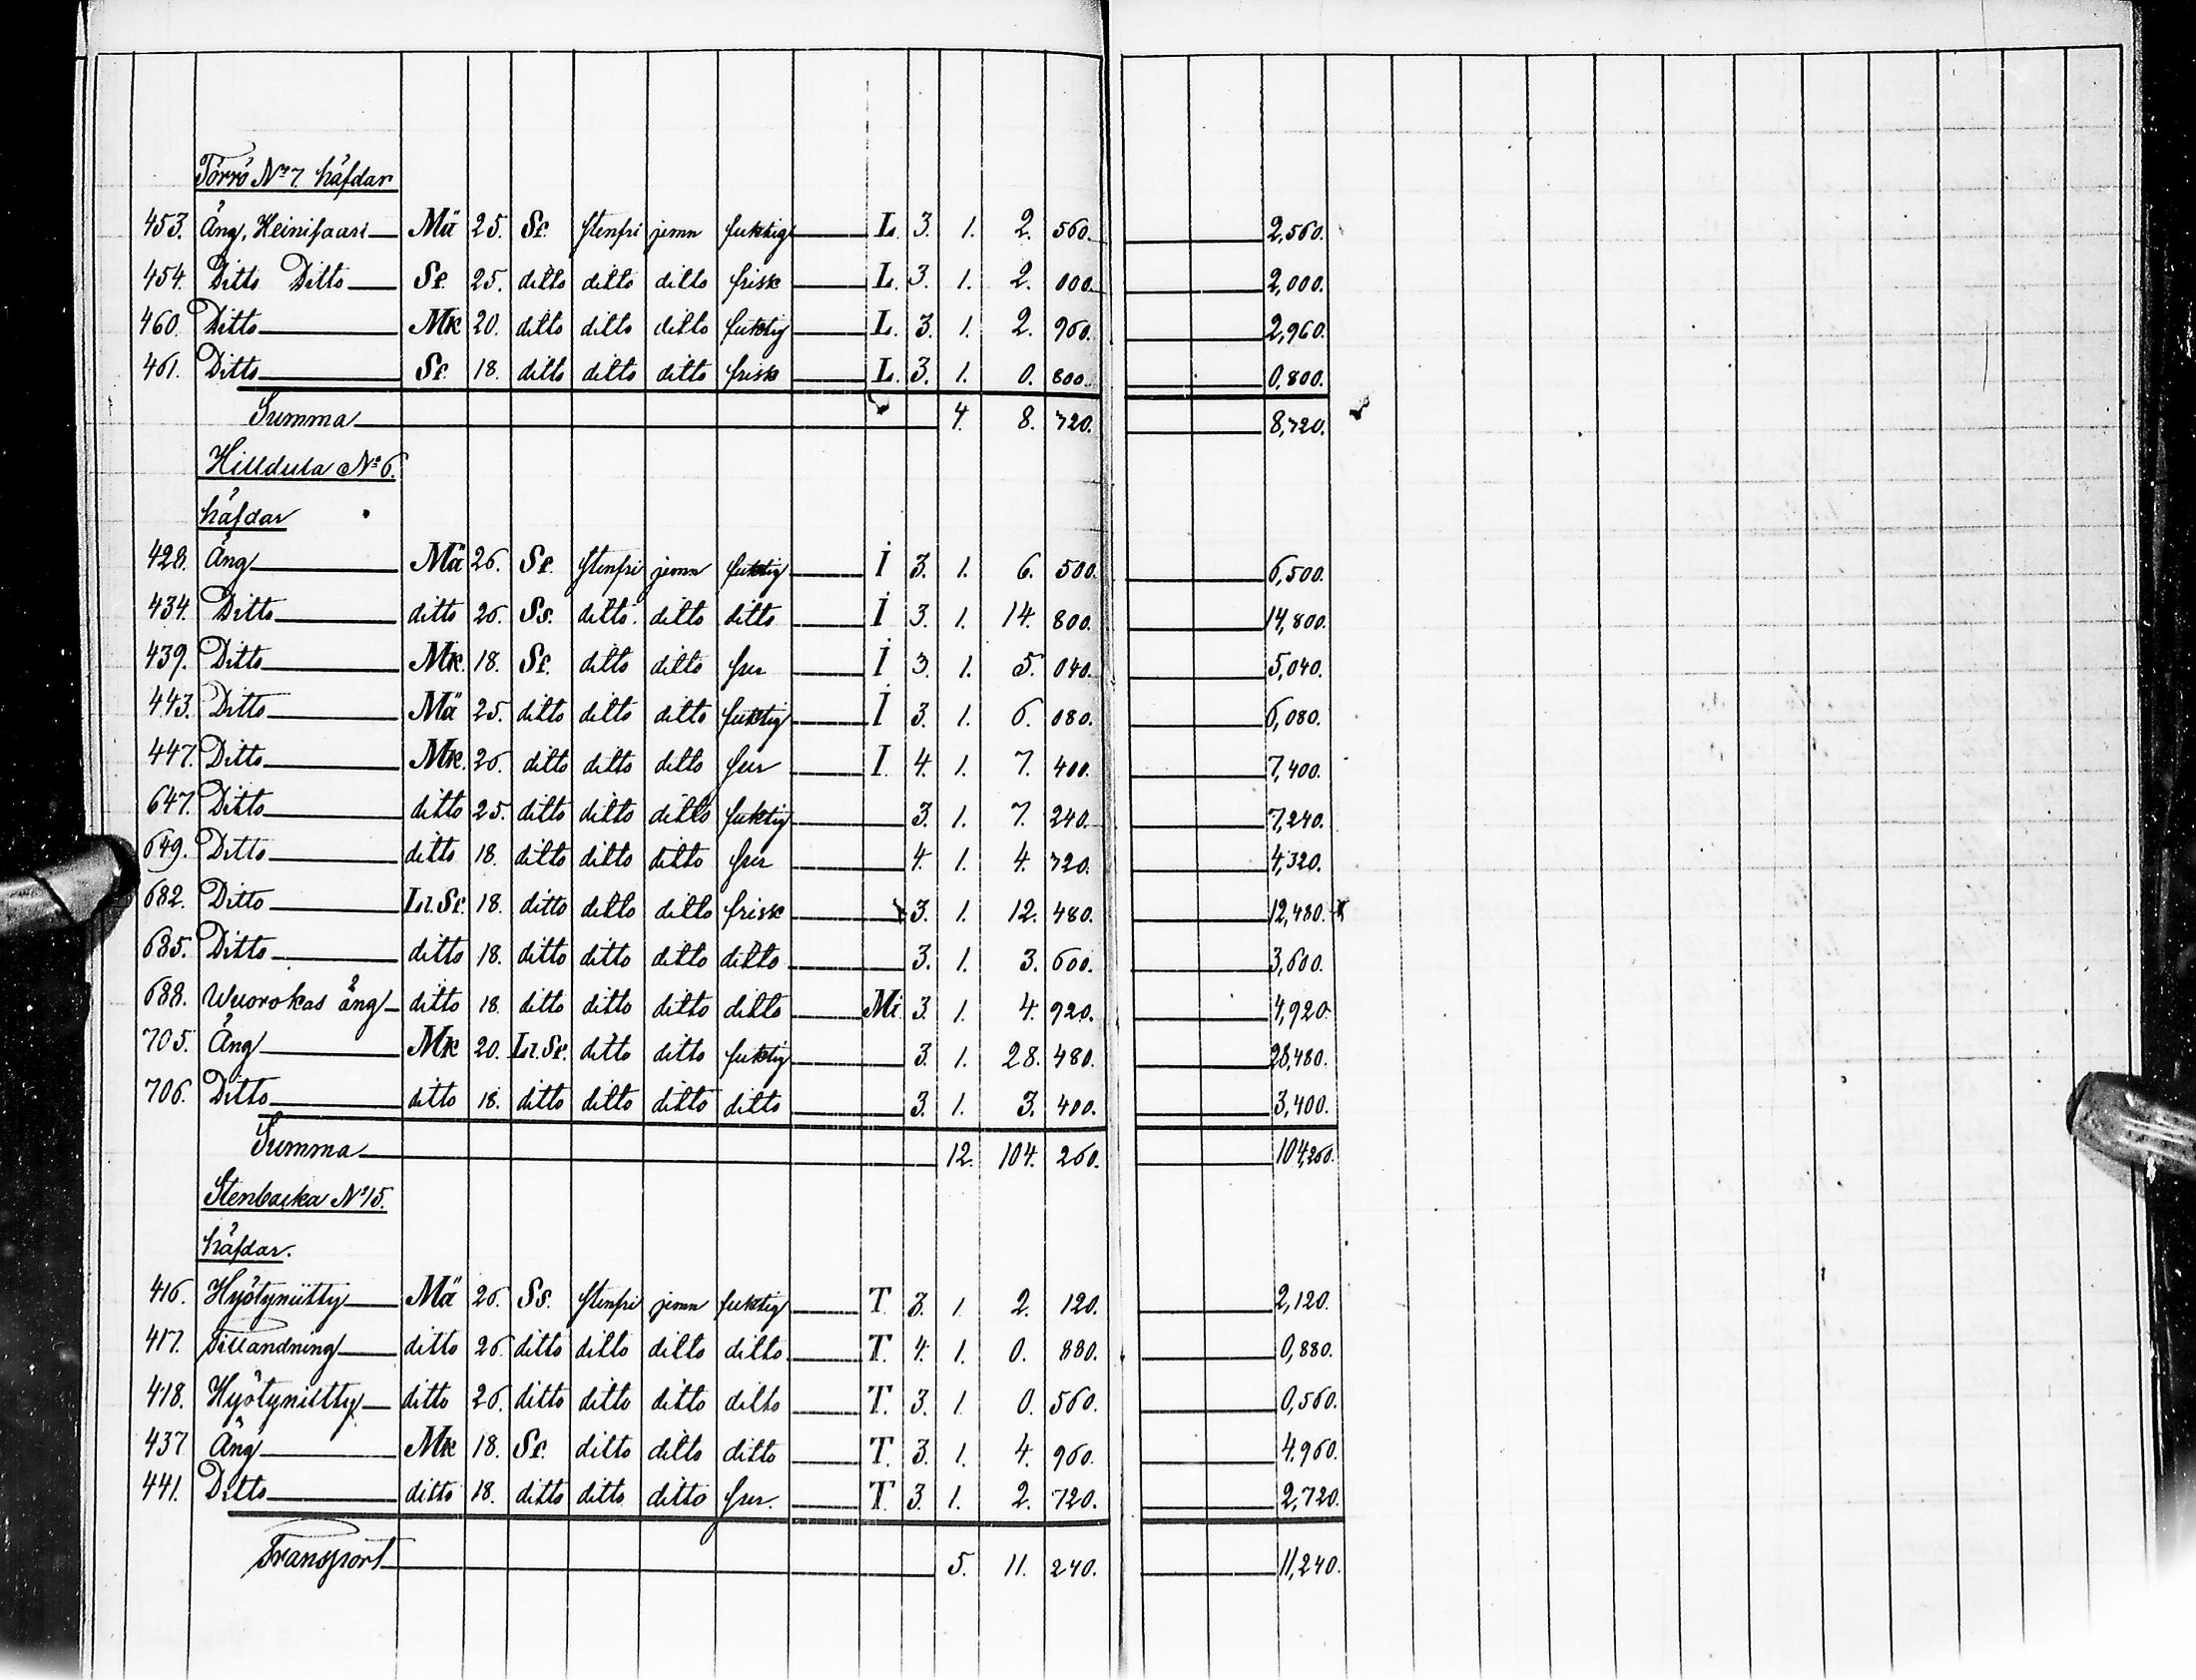 Törrö No 7 häfdar
453. Äng, Heinisaari Mä 25. Sf. stenfri jemn fuktig L. 3. 1. 2. 560. 2,560.
454. Ditto Ditto Sf. 25. ditto ditto ditto frisk L. 3. 1. 2. 000. 2,000.
460. Ditto Mk 20. ditto ditto ditto fuktig L. 3. 1. 2. 960. 2,960.
461. Ditto Sf. 18. ditto ditto ditto frisk L. 3. 1. 0. 800. 0,800.
Summa 4. 8. 720. 8,720.
Hilldula No 6.
häfdar
428. Äng Mä 26. Sf. stenfri jemn fuktig I 3. 1. 6. 500. 6,500.
434. Ditto ditto 26. Ss. ditto ditto ditto I 3. 1. 14. 800. 14,800.
439. Ditto Mk. 18. Sf. ditto ditto I 3. 1. 5. 040. 5,040.
443. Ditto Mä 25. ditto ditto ditto fuktig I 3. 1. 6. 080. 6,080.
447. Ditto Mk. 26. ditto ditto ditto I. 4. 1. 7. 400. 7,400.
647. Ditto ditto 25. ditto ditto ditto fuktig 3. 1. 7. 240. 7,240.
649. Ditto ditto 18. ditto ditto ditto 4. 1. 4. 320. 4,320.
682. Ditto Lr.Sf. 18. ditto ditto ditto frisk 3. 1. 12. 480. 12,480.
685. Ditto ditto 18. ditto ditto ditto ditto 3. 1. 3. 600. 3,600.
688. Wuorokas äng ditto 18. ditto ditto ditto ditto Mi. 3. 1. 4. 920. 4,920.
705. Äng Mk 20. Lr.Sf. ditto ditto fuktig 3. 1. 28. 480. 28,480.
706. Ditto ditto 18. ditto ditto ditto ditto 3. 1. 3. 400. 3,400.
Summa 12. 104. 260. 104,260.
Stenbacka No 15.
häfdar.
416. Hyötyniitty Mä 26. Ss. stenfri jemn fuktig T. 3. 1. 2. 120. 2,120.
417. Tillandning ditto 26. ditto ditto ditto ditto T. 4. 1. 0. 880. 0,880.
418. Hyötyniitty ditto 26. ditto ditto ditto ditto T. 3. 1. 0. 560. 0,560.
437 Äng Mk 18. Sf. ditto ditto ditto T. 3. 1. 4. 960. 4,960.
441. Ditto ditto 18. ditto ditto ditto T. 3. 1. 2. 720. 2,720.
Transport 5. 11. 240. 11,240.